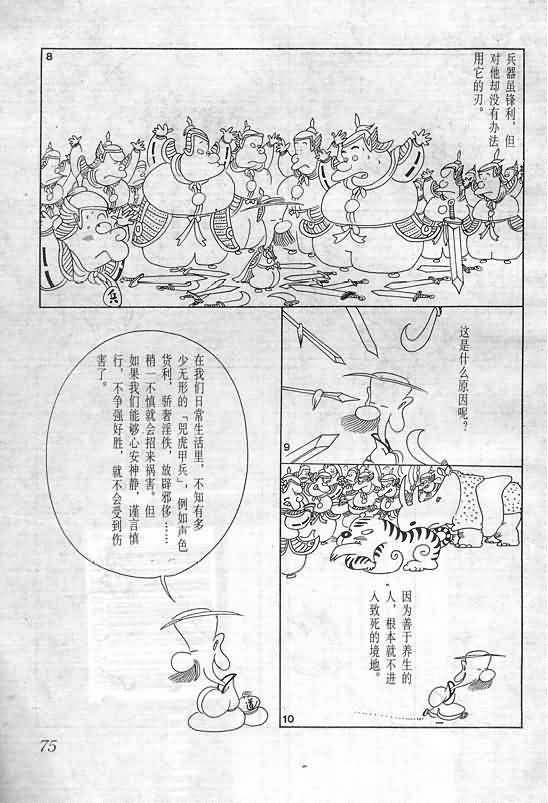 8
兵器虽锋利，但
对他却没有办法
用它的刃。
兵
9
这是什么原因呢？
10
因为善于养生的
人，根本就不进
入致死的境地。
在我们日常生活里，不知有多
少无形的「兕虎甲兵」，例如声色
货利，骄奢淫佚，放辟邪侈……
稍一不慎就会招来祸害。但
如果我们能够心安神静，谨言慎
行，不争强好胜，就不会受到伤
害了。
道
75